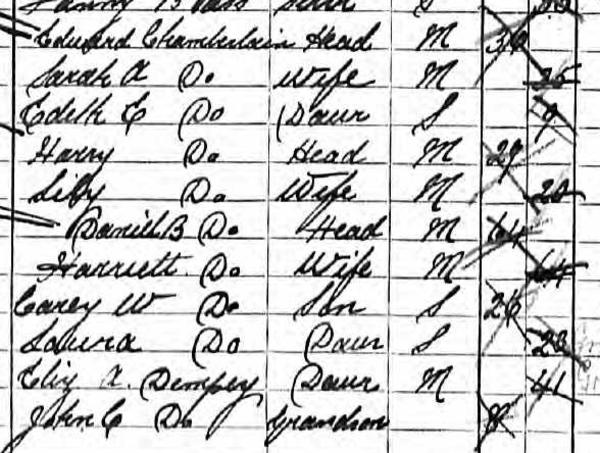 Edward Chamberlain Head M 36
Sarah A Do Wife M 35
Edith E Do Daur S 9
Harry Do Head M 29
Lily Do Wife M 20
Daniel B Do Head M 64
Harriett Do Wife M 64
Carey W Do Son S 26
Laura Do Daur S 23
Eliz A. Dempsey Daur M 41
John C Do Grandson 8